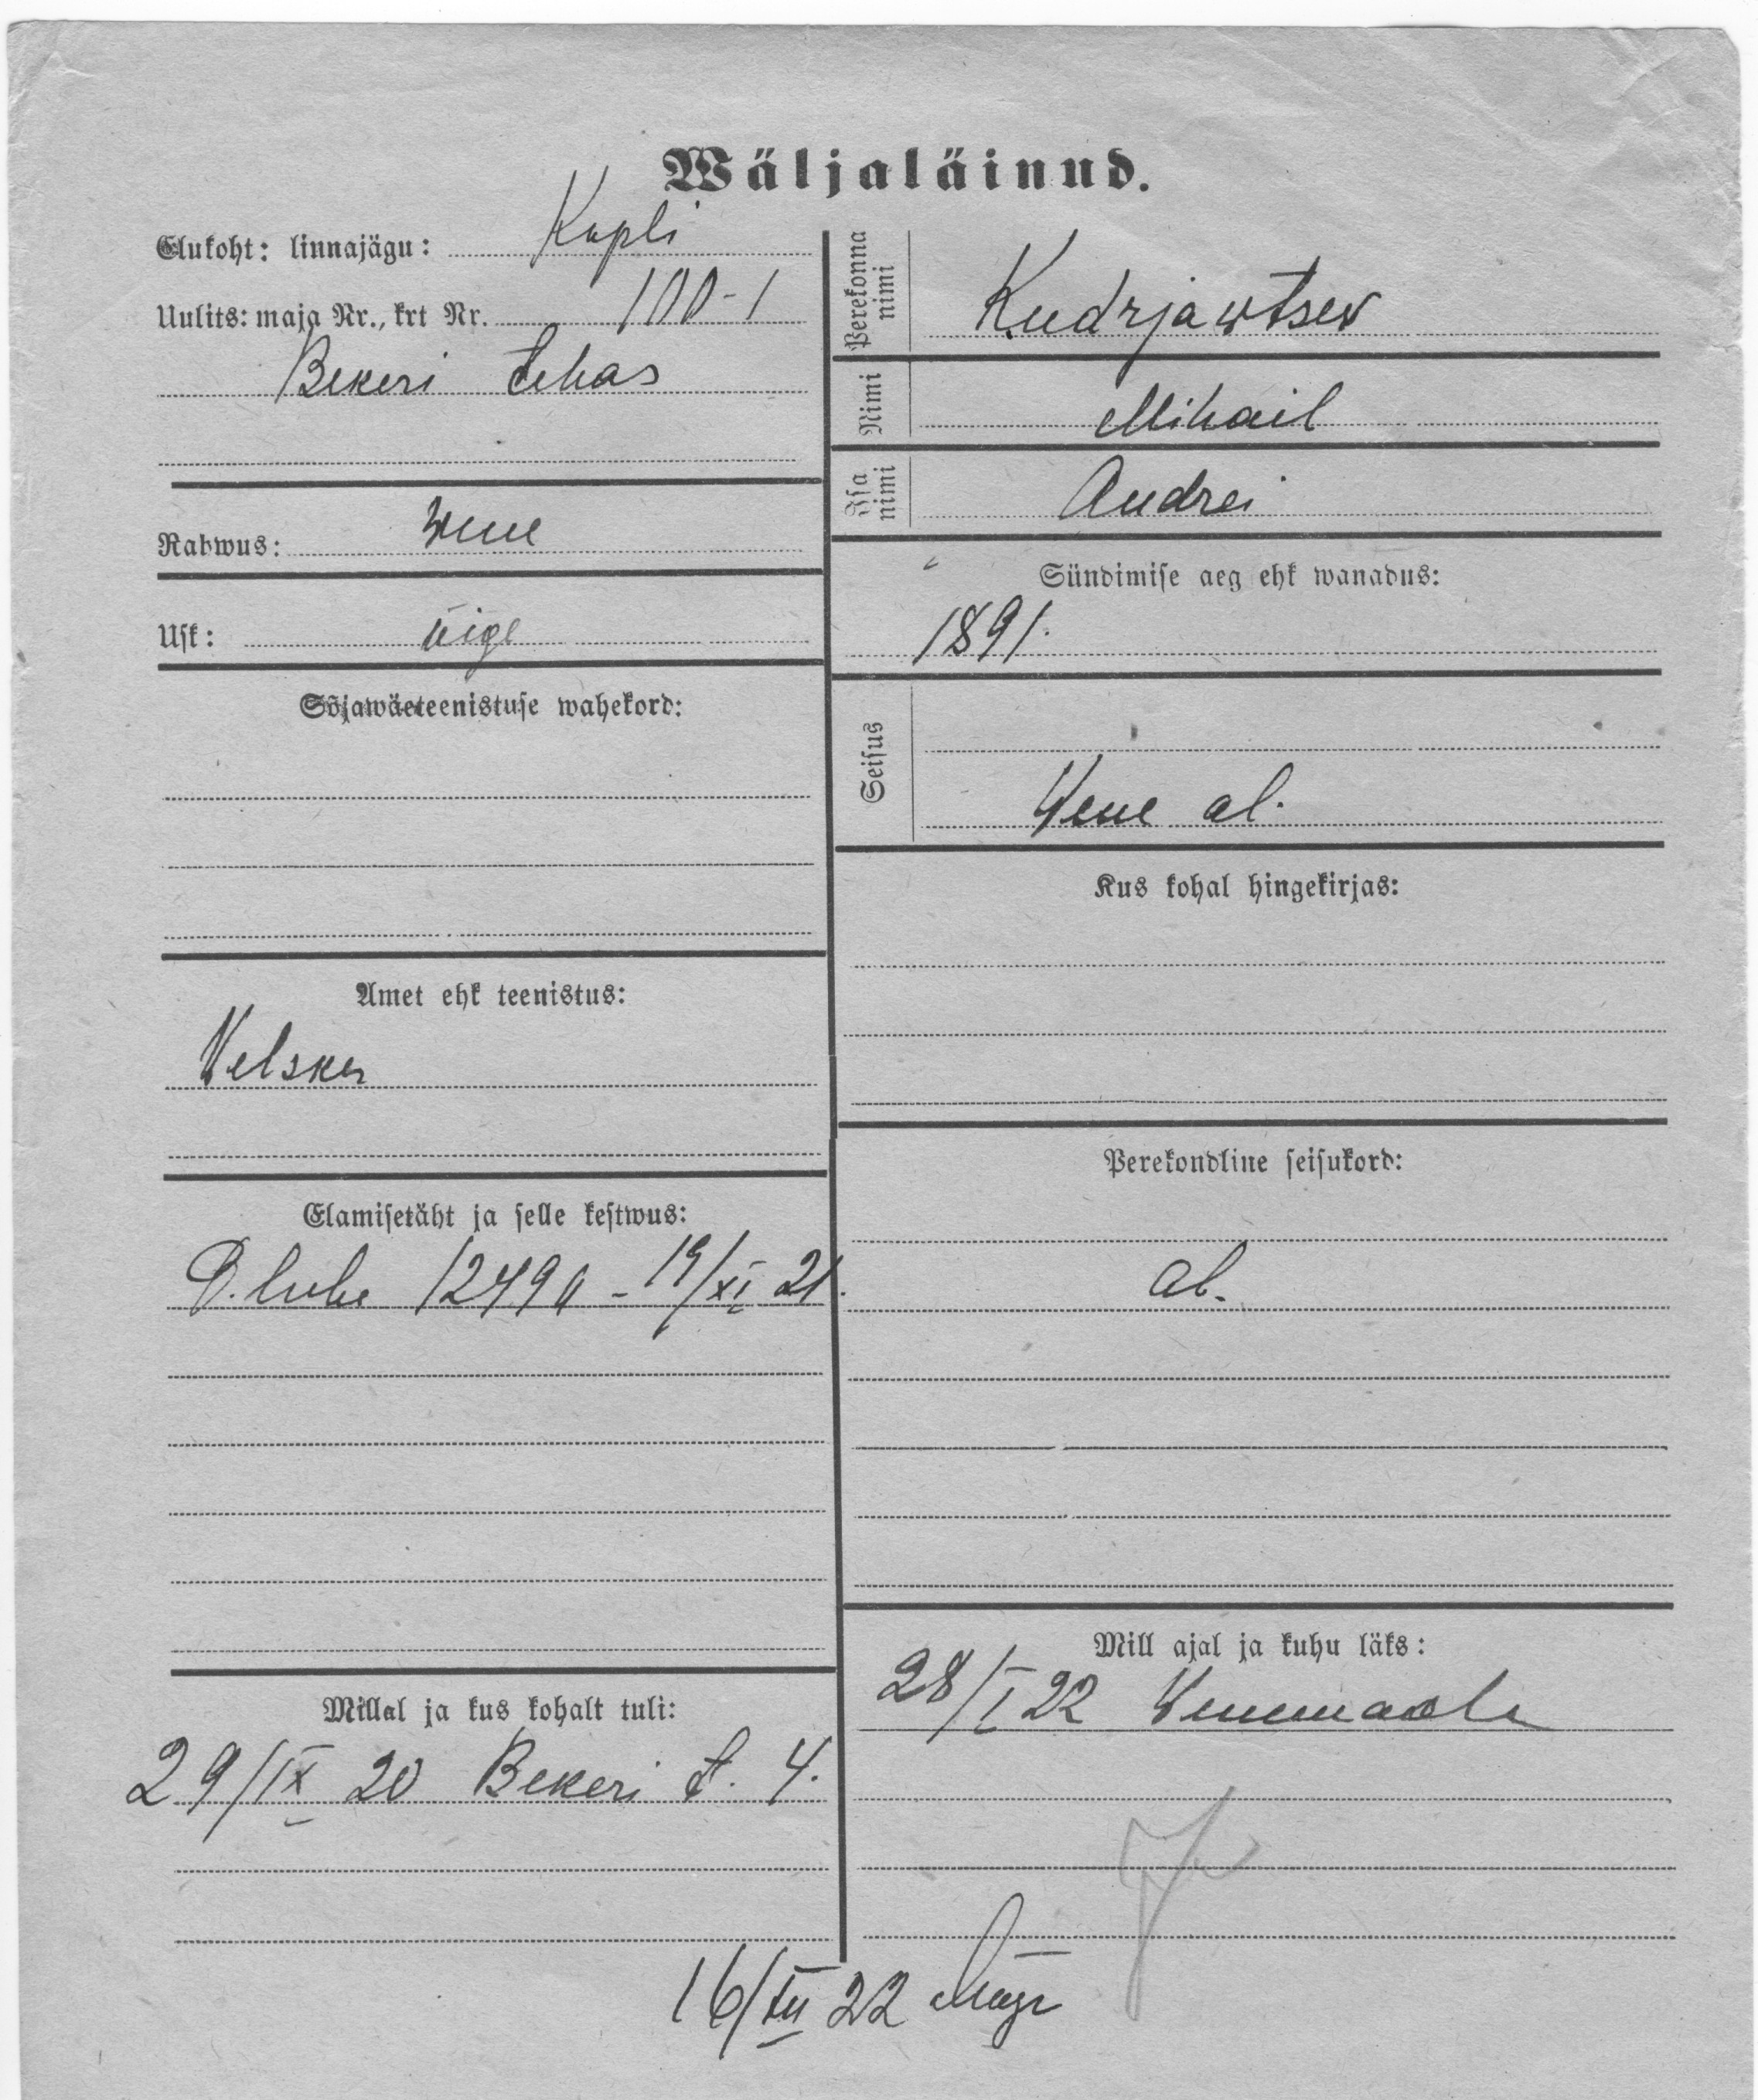 Wäljaläinud.
Elukoht: linnajagu: Kopli
Uulits: maja Nr., krt Nr. 100-1
Bekeri tehas
Rahwus: wene
Usk: õige
Sõjawäeteenistuse wahekord:
Amet ehk teenistus:
Velsker
Elamisetäht ja selle kestwus:
D. luba 12490 - 19/XI 21.
Millal ja kus kohalt tuli:
29/IX 20 Bekeri t. 4.
Perekonna nimi Kudrjawtsev
Nimi Mihail
Isa nimi Andrei
Sündimise aeg ehk wanadus:
1891.
Seisus
Wene al.
Kus kohal hingekirjas:
Perekondline seisukord:
ab.
Mill ajal ja kuhu läks:
28/I 22 Wenemaale
16/III 22